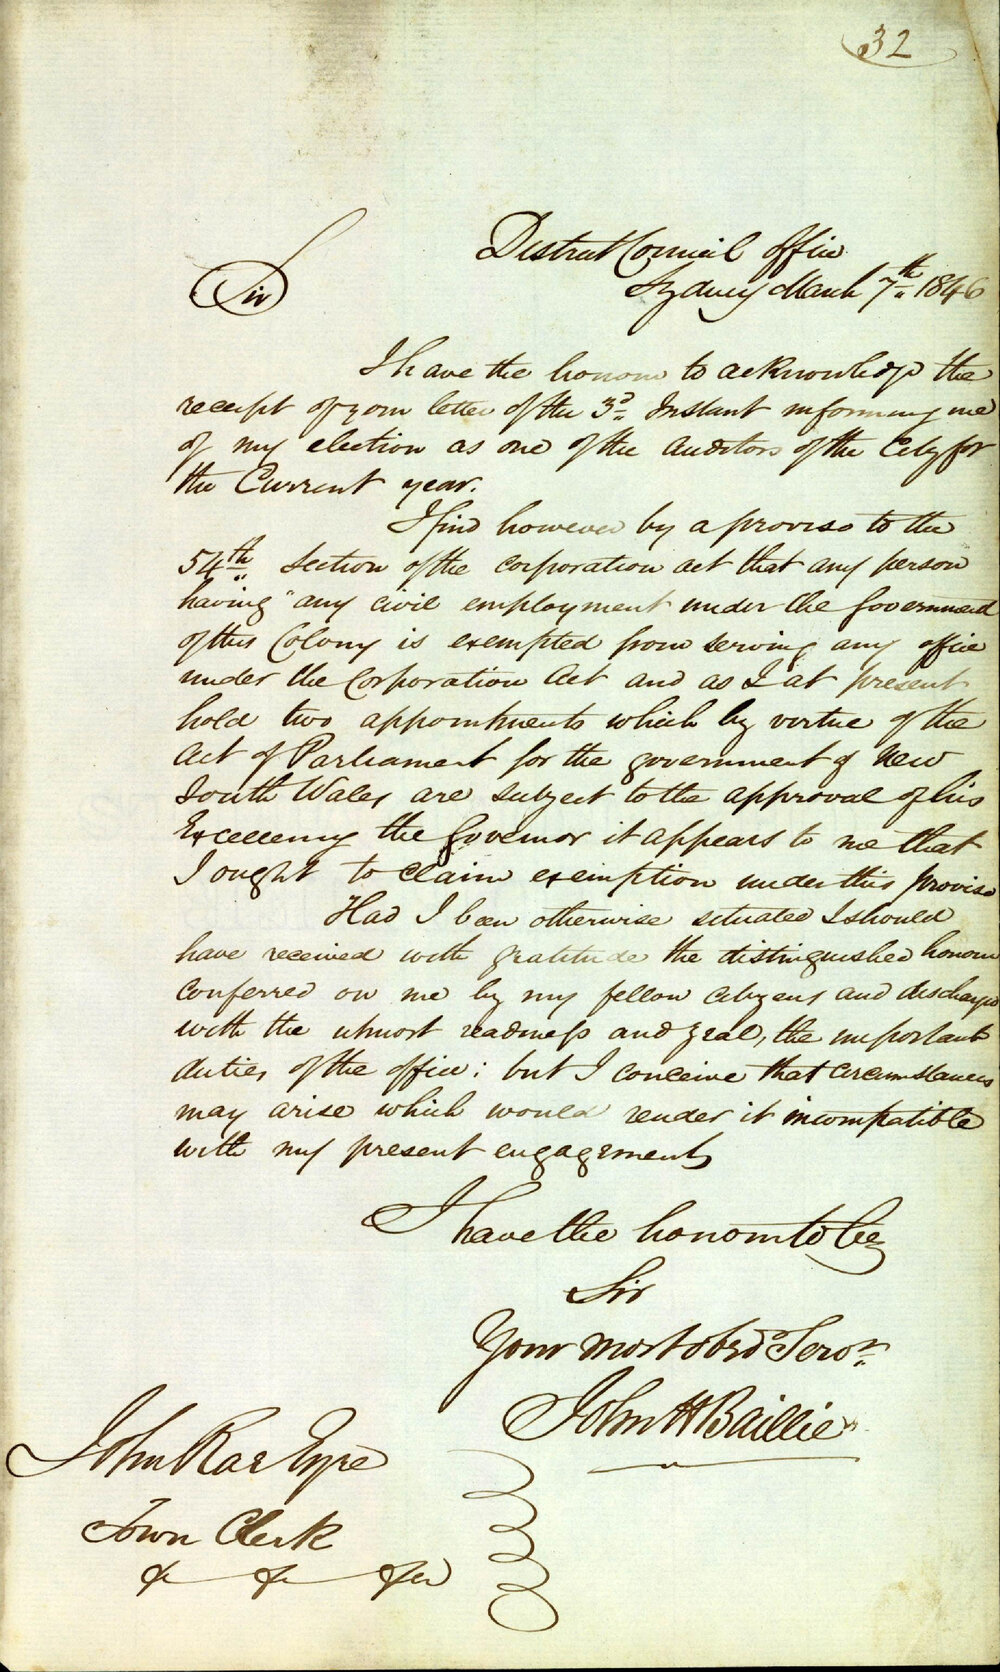 32
District Council Office
Sydney March 7th 1846
Sir
I have the honour to acknowledge the
receipt of your letter of the 3d Instant informing me
of my election as one of the Auditors of the City for
the Current year.
I find however by a proviso to the
54th Section of the corporation act that any person
having "any civil employment under the Government
of this Colony is exempted from serving any office
under the Corporation Act and as I at present
hold two appointments which by virtue of the
Act of Parliament for the government of New
South Wales are subject to the approval of his
Excellency the Governor it appears to me that
I ought to claim exemption under this proviso
Had I been otherwise situated I should
have received with gratitude the distinguished honour
conferred on me by my fellow citizens and discharged
with the utmost readiness and zeal, the important
duties of the office; but I conceive that circumstances
may arise which would render it incompatible
with my present engagements
I have the honour to be
Sir
Your most obed Servt
John H Baillie
John Rae Esqre
Town Clerk
&c &c &c